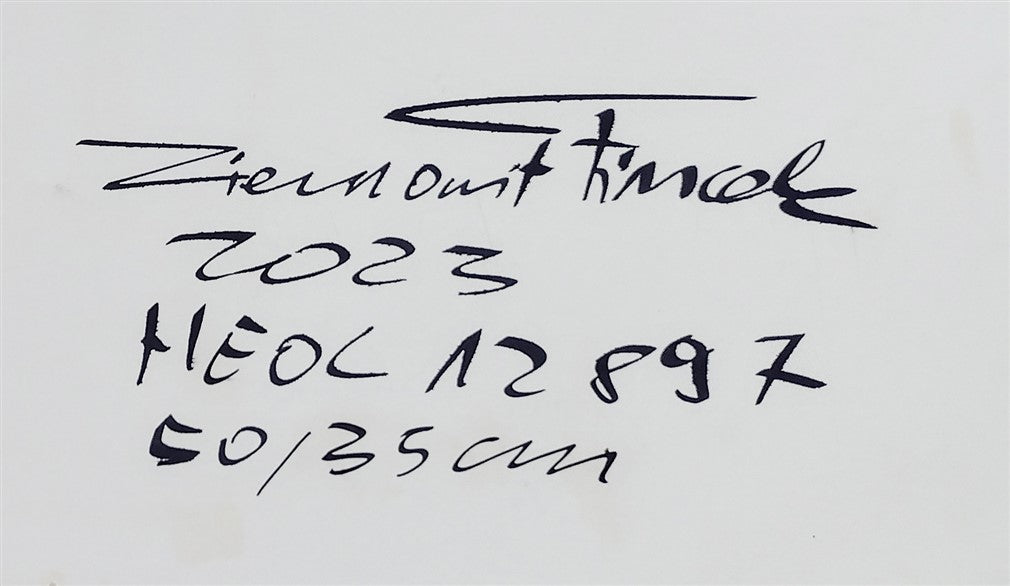 Ziemowit Fincek
2023
NEOL 12 897
50/35 cm